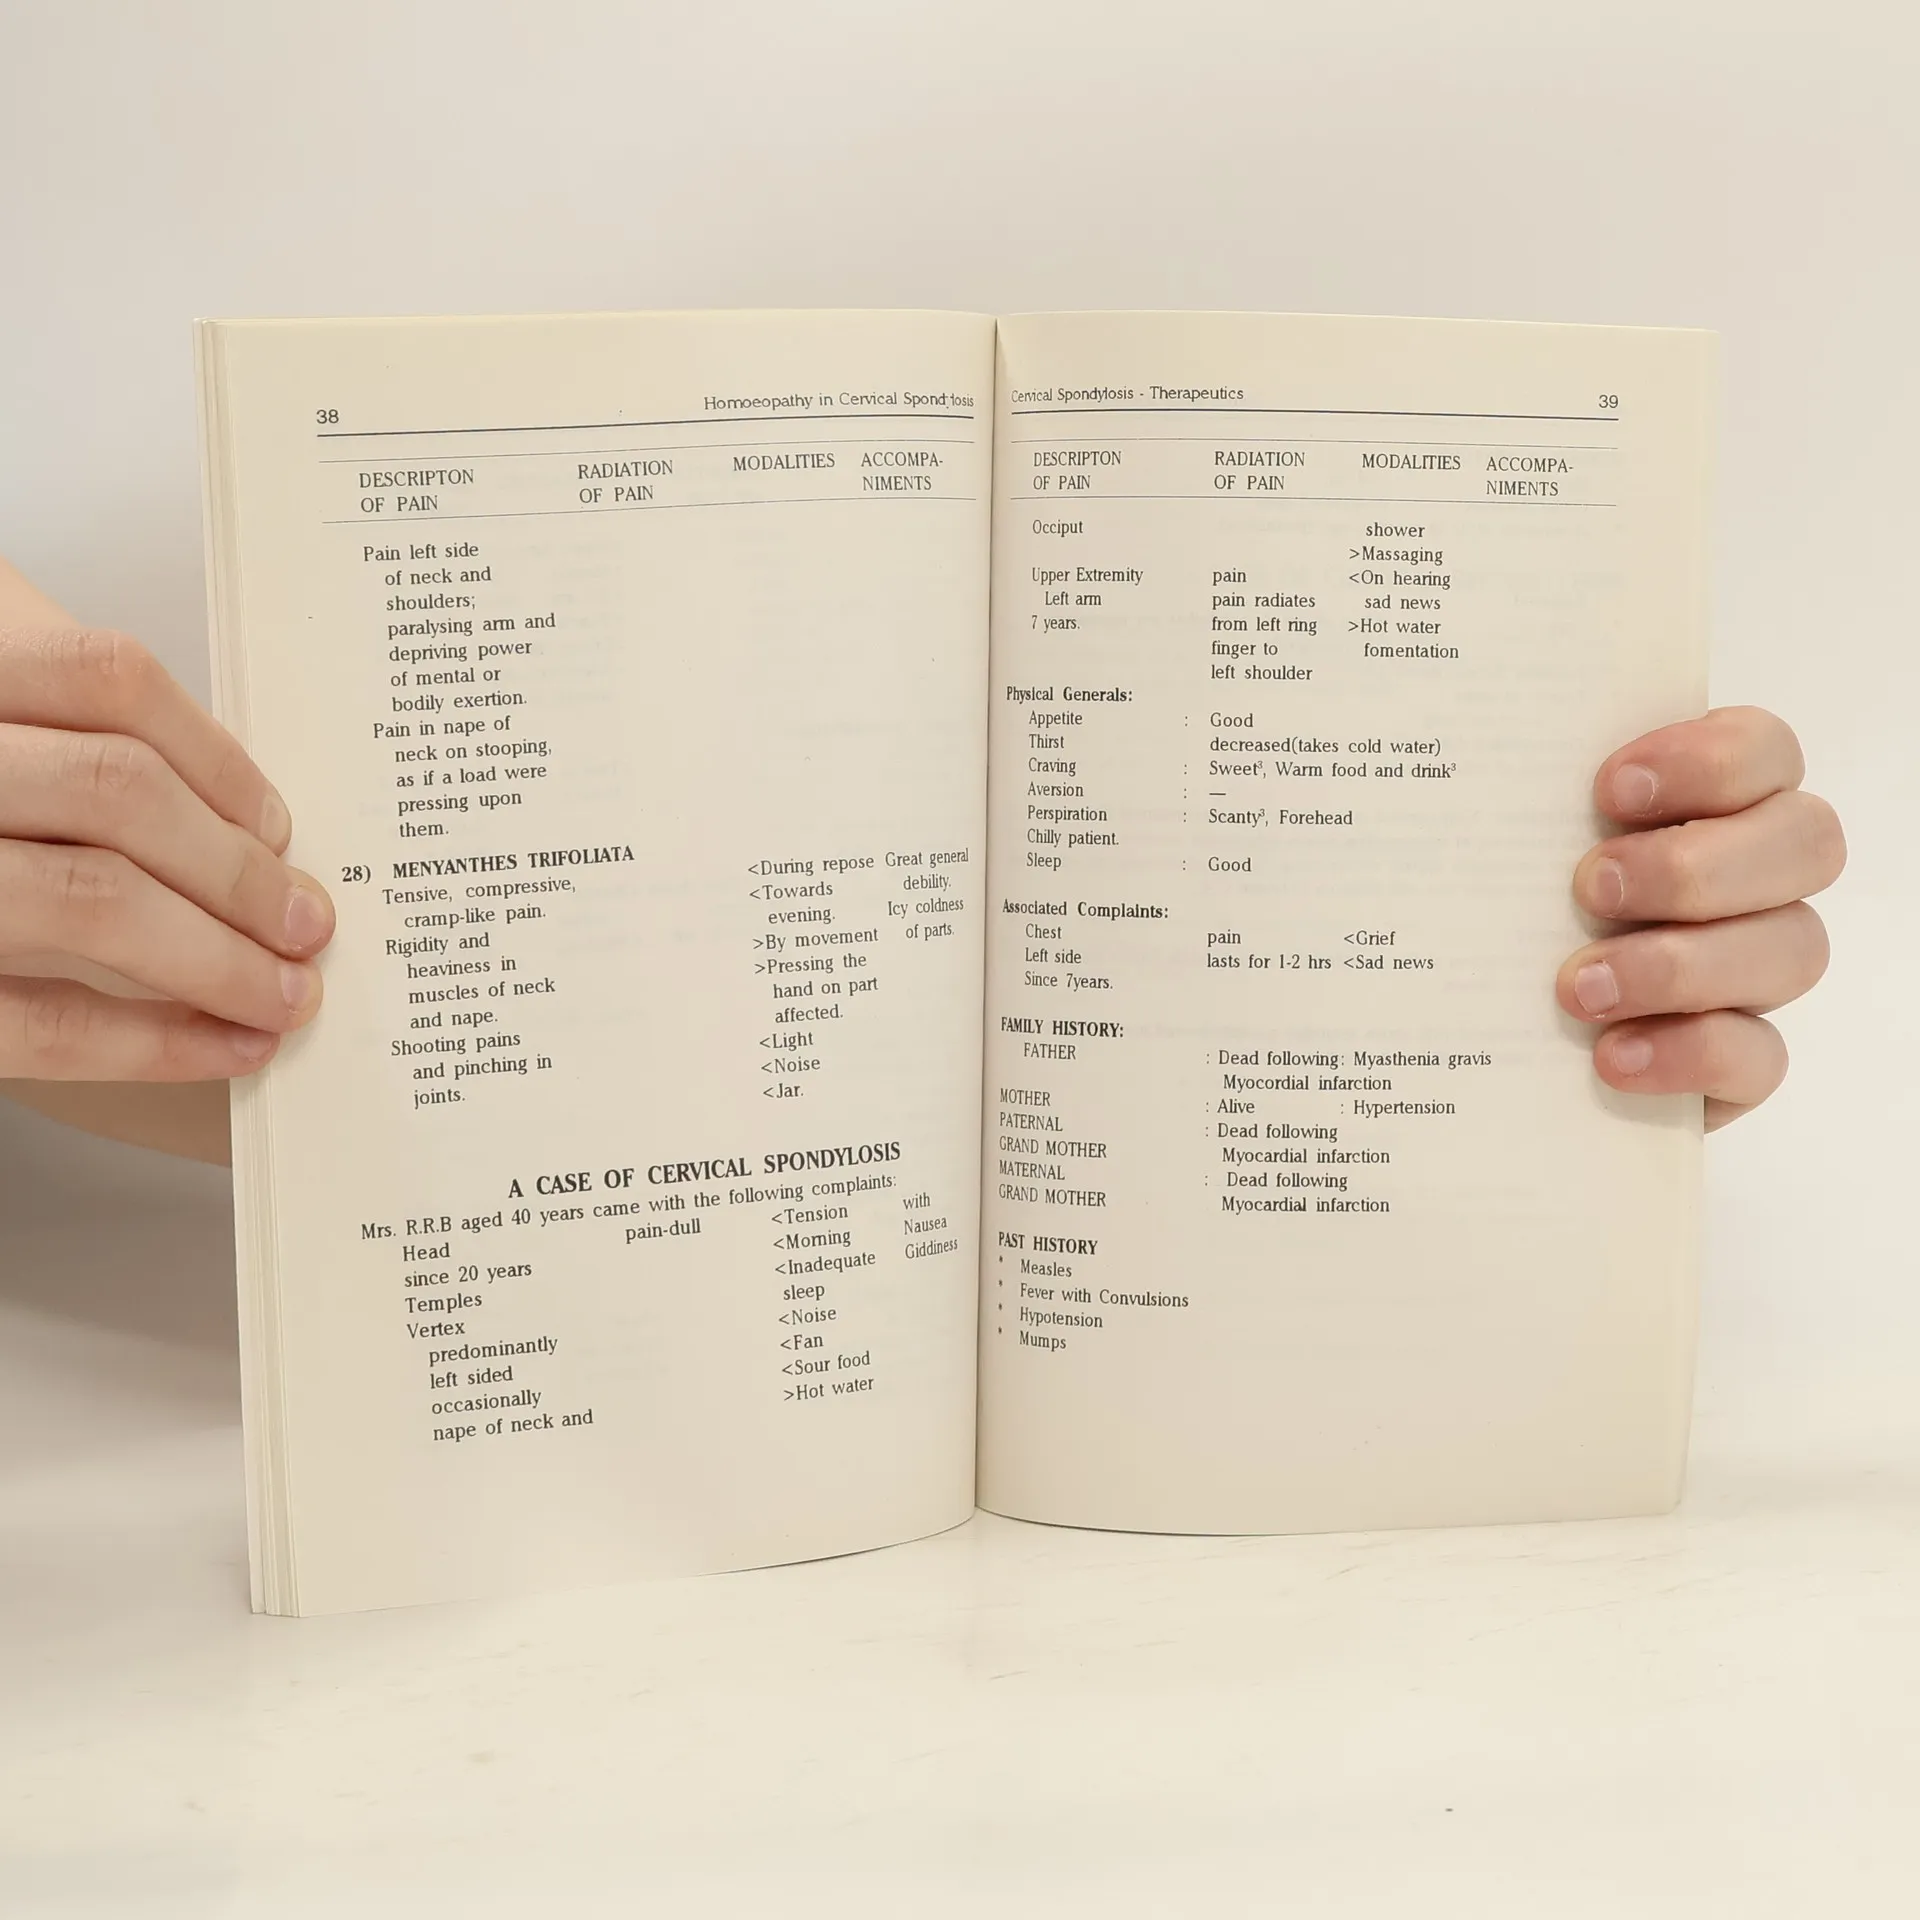 38 Homoeopathy in Cervical Spondylosis
DESCRIPTON RADIATION MODALITIES ACCOMPA-
OF PAIN OF PAIN NIMENTS
Pain left side
of neck and
shoulders;
paralysing arm and
depriving power
of mental or
bodily exertion.
Pain in nape of
neck on stooping,
as if a load were
pressing upon
them.
28) MENYANTHES TRIFOLIATA
Tensive, compressive, <During repose Great general
cramp-like pain. <Towards debility.
Rigidity and evening. Icy coldness
heaviness in >By movement of parts.
muscles of neck >Pressing the
and nape. hand on part
Shooting pains affected.
and pinching in <Light
joints. <Noise
<Jar.
A CASE OF CERVICAL SPONDYLOSIS
Mrs. R.R.B aged 40 years came with the following complaints:
Head pain-dull <Tension with
since 20 years <Morning Nausea
Temples <Inadequate Giddiness
Vertex sleep
predominantly <Noise
left sided <Fan
occasionally <Sour food
nape of neck and >Hot water
Cervical Spondylosis - Therapeutics 39
DESCRIPTON RADIATION MODALITIES ACCOMPA-
OF PAIN OF PAIN NIMENTS
Occiput shower
>Massaging
Upper Extremity pain <On hearing
Left arm pain radiates sad news
7 years. from left ring >Hot water
finger to fomentation
left shoulder
Physical Generals:
Appetite : Good
Thirst decreased(takes cold water)
Craving : Sweet³, Warm food and drink³
Aversion : —
Perspiration : Scanty³, Forehead
Chilly patient.
Sleep : Good
Associated Complaints:
Chest pain <Grief
Left side lasts for 1-2 hrs <Sad news
Since 7years.
FAMILY HISTORY:
FATHER : Dead following: Myasthenia gravis
Myocordial infarction
MOTHER : Alive : Hypertension
PATERNAL : Dead following
GRAND MOTHER Myocardial infarction
MATERNAL : Dead following
GRAND MOTHER Myocardial infarction
PAST HISTORY
* Measles
* Fever with Convulsions
* Hypotension
* Mumps